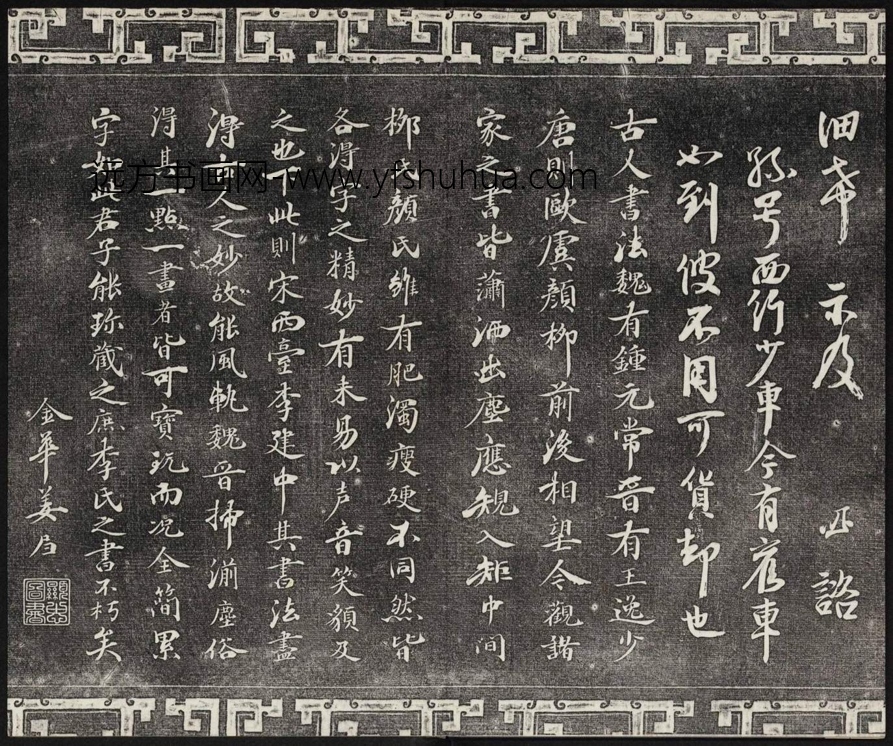 细希 示及 诰
孫号西行少車今有客車
如到彼不用可貨却也
古人書法魏有鍾元常晉有王逸少
唐則歐虞顔柳前後相望今觀諸
家之書皆蕭洒出塵應規入矩中間
柳氏顔氏雖有肥濁瘦硬不同然皆
各得字之精妙有未易以声音笑貌及
之也下此則宋西臺李建中其書法盡
得古人之妙故能風軌魏晉掃湔塵俗
得其一點一畫者皆可寶玩而况全簡累
字如此君子能珍藏之庶李氏之書不朽矣
金華姜
远方书画网 www.yfshuhua.com